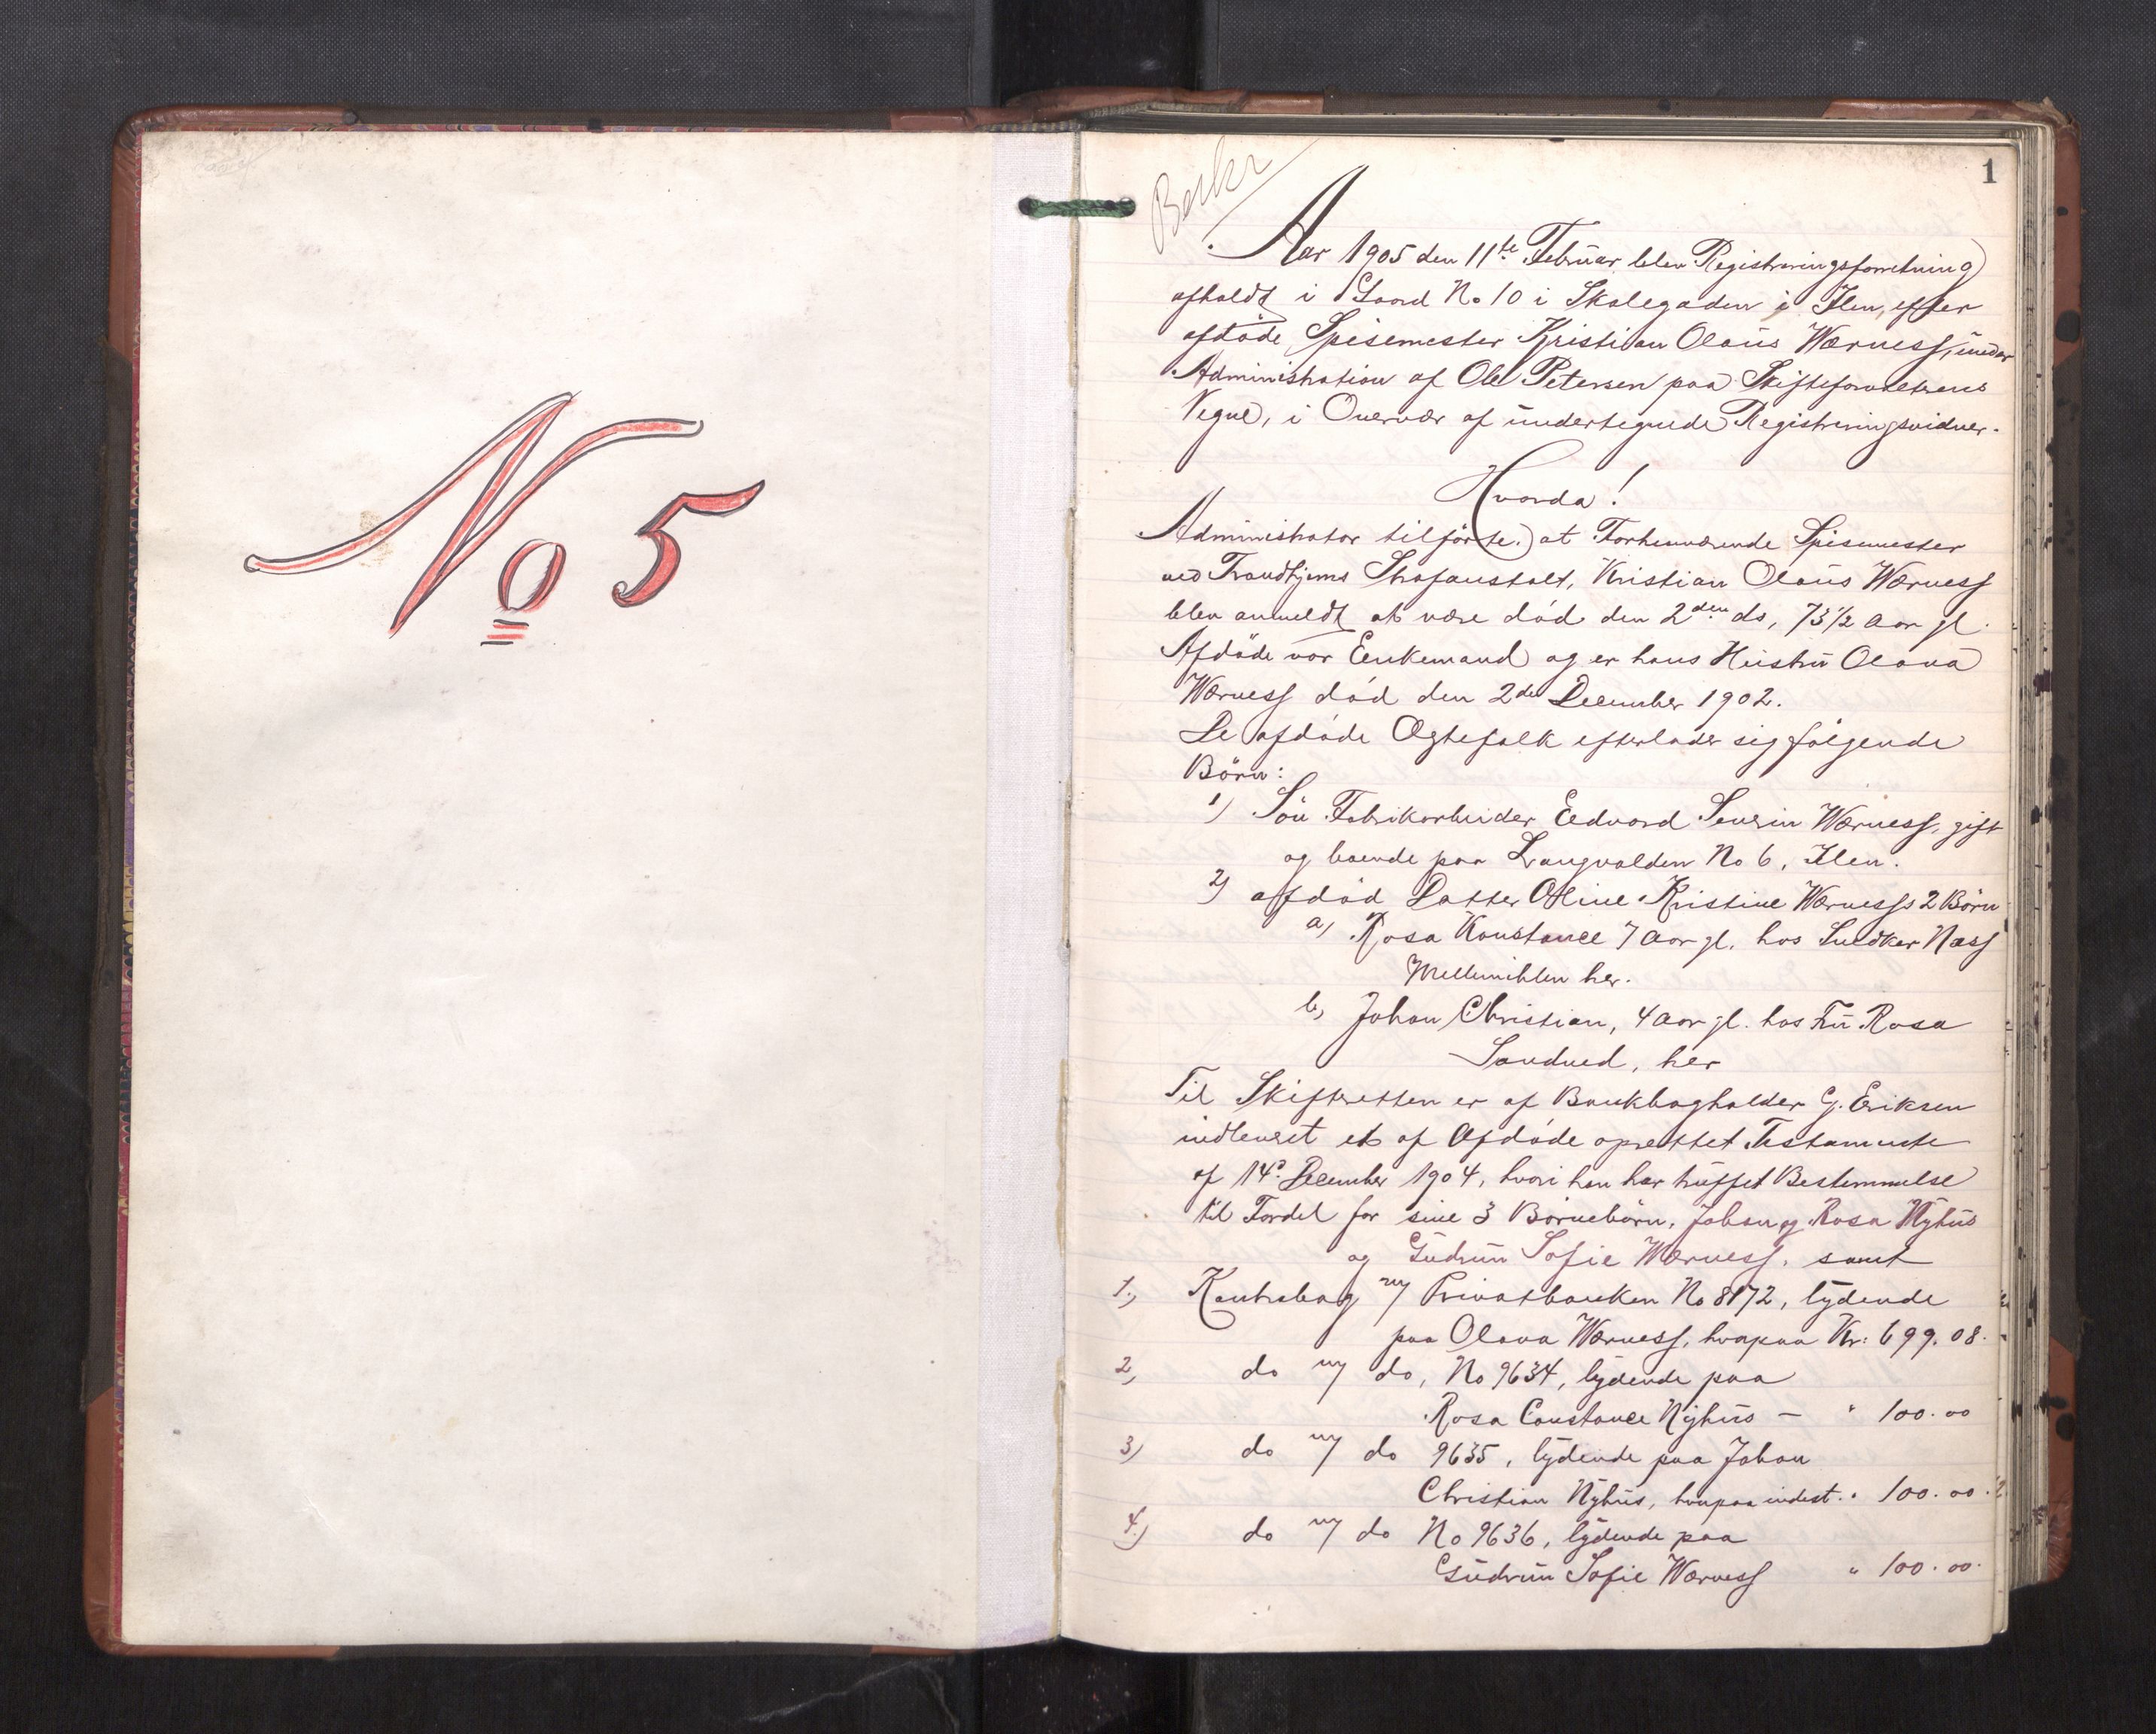 No 5
1
Aar 1905 den 11te Februar blev Registreringsforretning
afholdt i Gaard No 10 i Skolegaden i Ilen, efter
afdøde Spisemester Kristian Olaus Werness, under
Administration af Ole Petersen paa Skifteforvalterens
Vegne, i Overvær af undertegnede Registreringsvidner.
Hvorda!
Administrator tilførte: at Forhenværende Spisemester
ved Trondhjems Strafanstalt, Kristian Olaus Werness
blev anmeldt at være død den 2den ds, 73 1/2 Aar gl.
Afdøde var Enkemand og er hans Hustru Olava
Werness død den 2den December 1902.
De afdøde Ægtefolk efterlader sig følgende
Børn:
1) Søn Fabrikarbeider Edvard Severin Werness, gift
og boende paa Langvolden No 6, Ilen.
2) afdød Datter Oline Kristine Werness's 2 Børn
a) Rosa Konstance 7 Aar gl. hos Snedker Næss
Mellemihlen her.
b) Johan Christian, 4 Aar gl. hos Fru Rosa
Sandved, her
Til Skifteretten er af Bankbogholder G. Eriksen
indleveret et af Afdøde oprettet Testamente
af 14d. December 1904, hvori han har truffet Bestemmelse
til Fordel for sine 3 Børnebørn, Johan og Rosa Nyhus
og Gudrun Sofie Werness, samt
1.) Kontrabog m/ Privatbanken No 8172, lydende
paa Olava Werness, hvorpaa Kr: 699.08.
2, do m/ do, No 9634, lydende paa
Rosa Constance Nyhus — " 100.00
3) do m/ do 9635, lydende paa Johan
Christian Nyhus, hvorpaa indest. " 100.00.
4.) do m/ do No 9636, lydende paa
Gudrun Sofie Werness " 100.00.